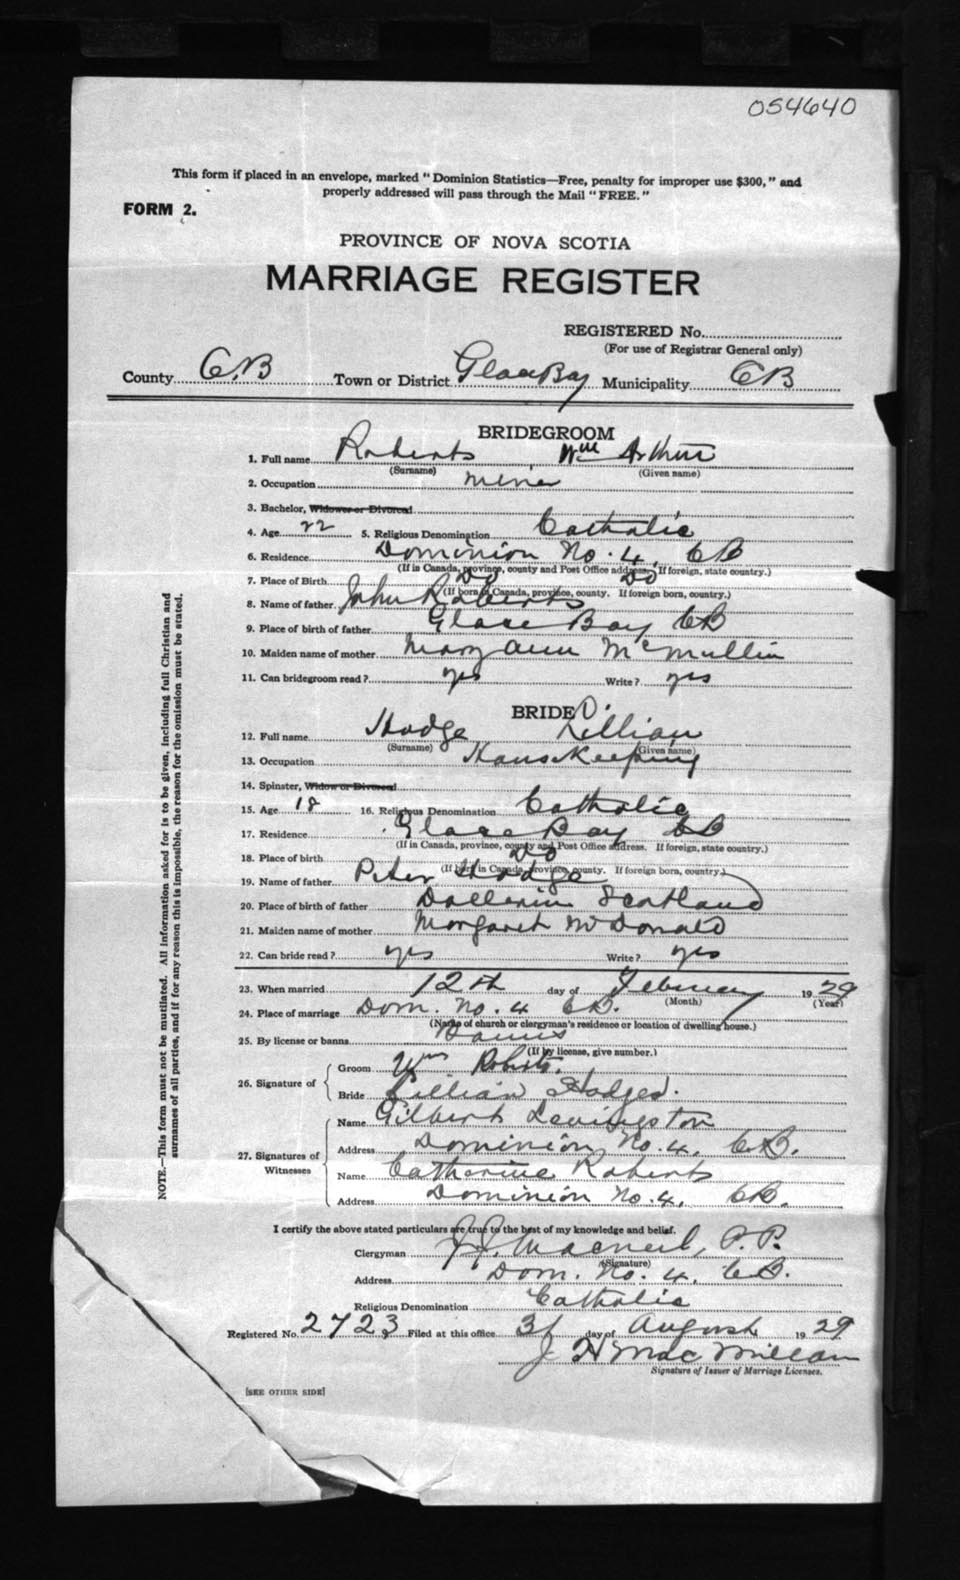 054640
This form if placed in an envelope, marked "Dominion Statistics—Free, penalty for improper use $300," and
properly addressed will pass through the Mail "FREE."
FORM 2.
PROVINCE OF NOVA SCOTIA
MARRIAGE REGISTER
REGISTERED No.
(For use of Registrar General only)
County C.B Town or District Glace Bay Municipality CB
BRIDEGROOM
1. Full name Roberts Wm Arthur
(Surname) (Given name)
2. Occupation miner
3. Bachelor, Widower or Divorced
4. Age 22 5. Religious Denomination Catholic
6. Residence Dominion No. 4, CB
(If in Canada, province, county and Post Office address. If foreign, state country.)
7. Place of Birth Do Do
(If born in Canada, province, county. If foreign born, country.)
8. Name of father John Roberts
9. Place of birth of father Glace Bay CB
10. Maiden name of mother Mary Ann McMullin
11. Can bridegroom read? yes Write? yes
BRIDE
12. Full name Hodge Lillian
(Surname) (Given name)
13. Occupation Housekeeping
14. Spinster, Widow or Divorced
15. Age 18 16. Religious Denomination Catholic
17. Residence Glace Bay CB
(If in Canada, province, county and Post Office address. If foreign, state country.)
18. Place of birth Do
(If born in Canada, province, county. If foreign born, country.)
19. Name of father Peter Hodge
20. Place of birth of father Scotland
21. Maiden name of mother Margaret McDonald
22. Can bride read? yes Write? yes
23. When married 12th day of February 1929
(Month) (Year)
24. Place of marriage Dom. No. 4 CB.
(Name of church or clergyman's residence or location of dwelling house.)
25. By license or banns Banns
(If by license, give number.)
26. Signature of Groom Wm Roberts.
Bride Lillian Hodges.
27. Signatures of Witnesses Name Gilbert Levingston
Address Dominion No. 4. C.B.
Name Catherine Roberts
Address Dominion No. 4, CB.
I certify the above stated particulars are true to the best of my knowledge and belief.
Clergyman J.J. Macneil, P.P.
(Signature)
Address Dom. No. 4. C.B.
Religious Denomination Catholic
Registered No. 2723 Filed at this office 31 day of August 1929
J H MacMillan
Signature of Issuer of Marriage Licenses.
[SEE OTHER SIDE]
NOTE.—This form must not be mutilated. All information asked for is to be given, including full Christian and
surnames of all parties, and if for any reason this is impossible, the reason for the omission must be stated.